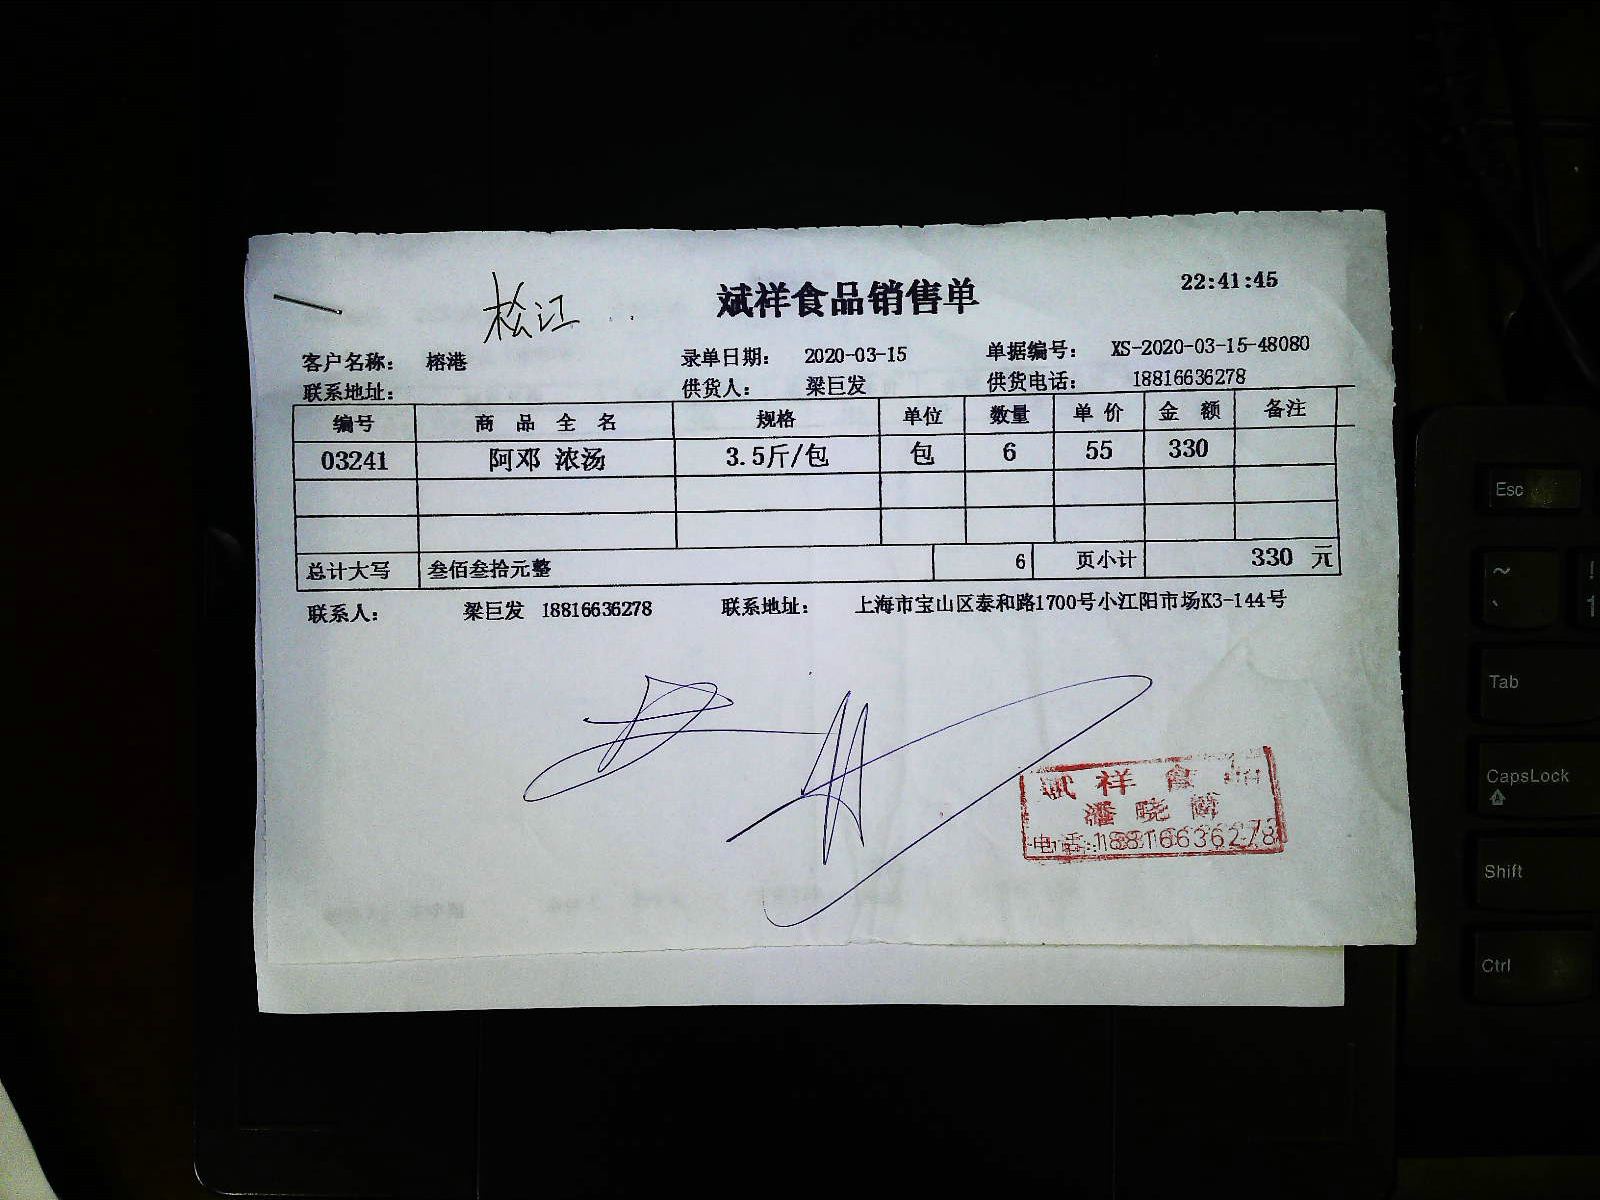 22:41:45
斌祥食品销售单
松江
客户名称： 榕港 录单日期： 2020-03-15 单据编号： XS-2020-03-15-48080
联系地址： 供货人： 梁巨发 供货电话： 18816636278
编号 商品全名 规格 单位 数量 单价 金额 备注
03241 阿邓 浓汤 3.5斤/包 包 6 55 330
总计大写 叁佰叁拾元整 6 页小计 330 元
联系人： 梁巨发 18816636278 联系地址： 上海市宝山区泰和路1700号小江阳市场K3-144号
斌祥食品
潘晓
电话:18816636278
Esc
~
!
、
1
Tab
CapsLock
Shift
Ctrl